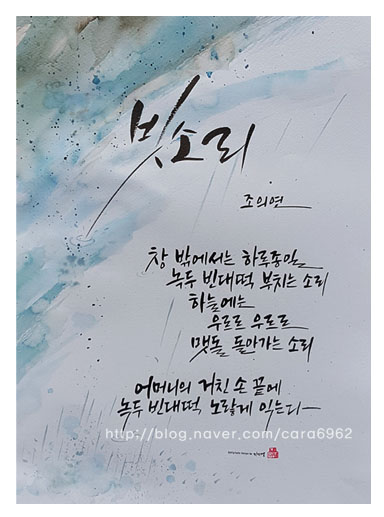 빗소리
조의연
창 밖에서는 하루종일
녹두 빈대떡 부치는 소리
하늘에는
우르르 우르르
맷돌 돌아가는 소리
어머니의 거친 손 끝에
녹두 빈대떡 노랗게 익는다
http://blog.naver.com/cara6962